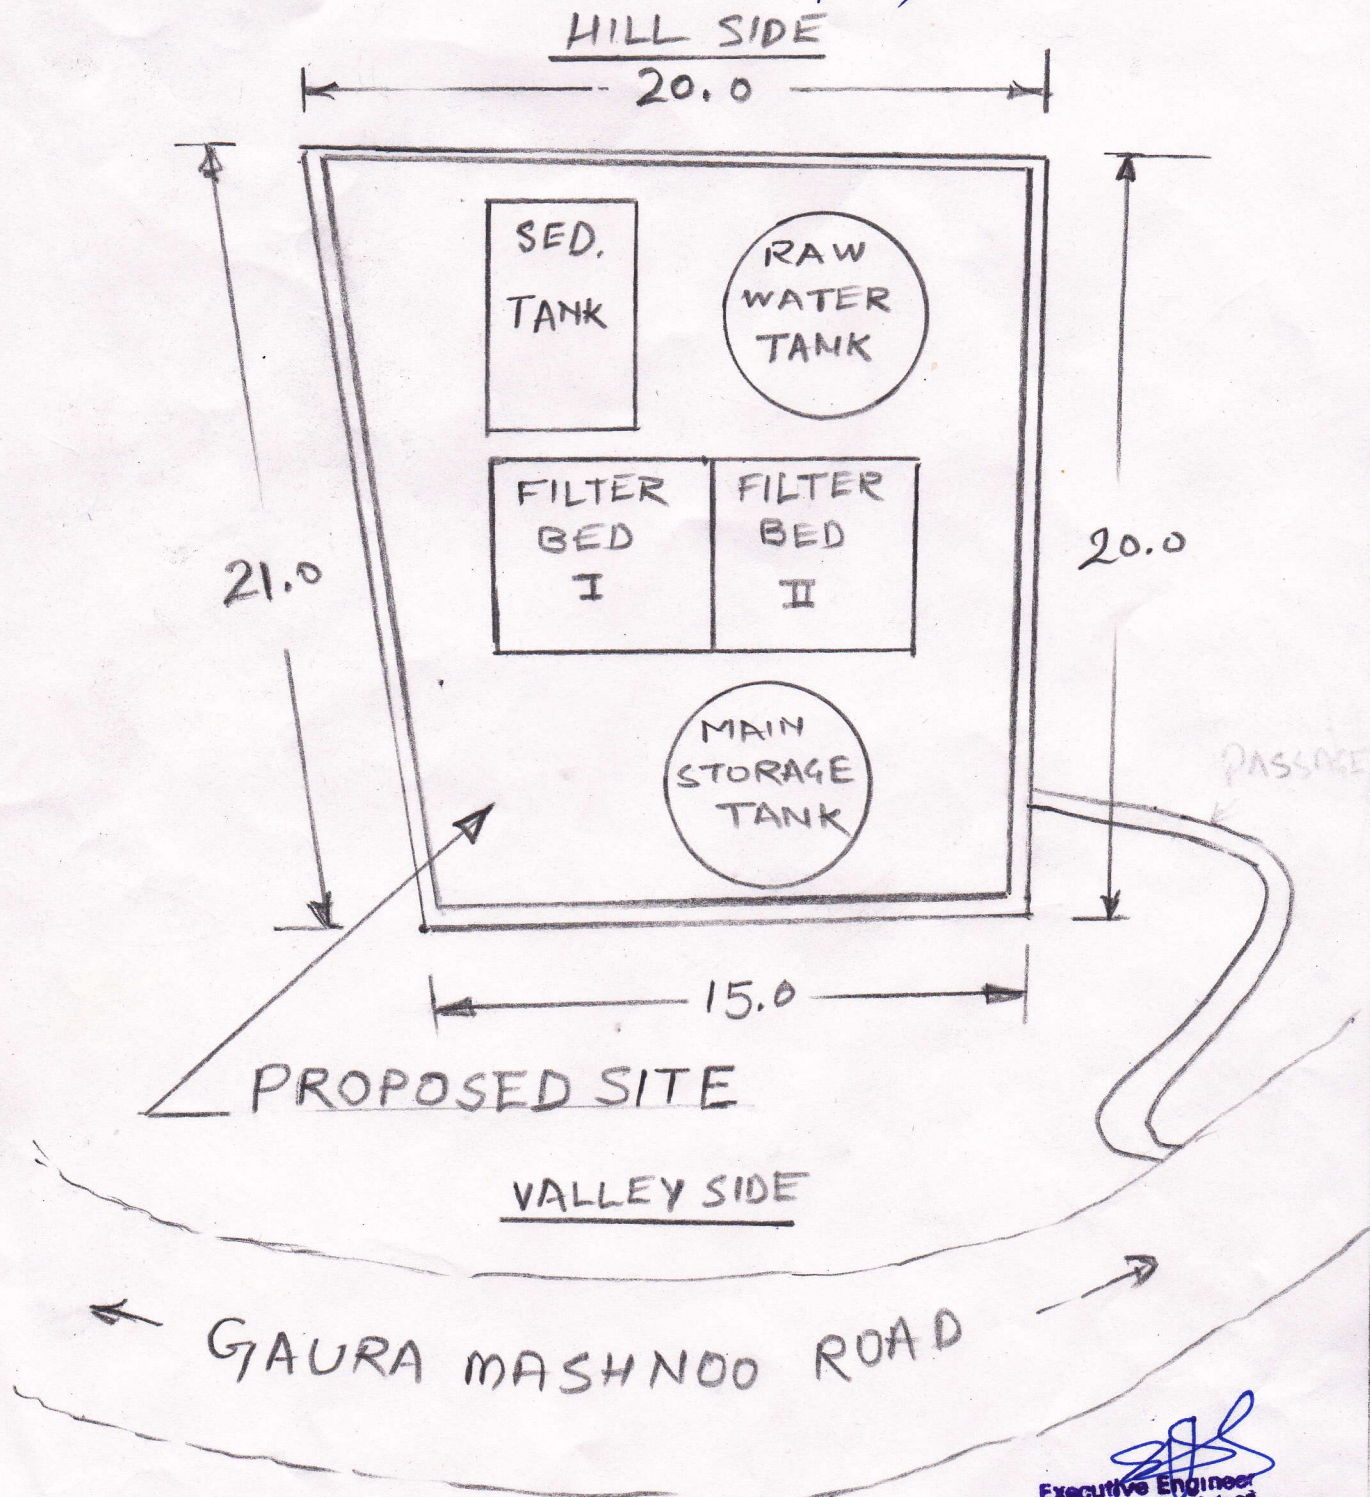 HILL SIDE
20.0
SED.
TANK
RAW
WATER
TANK
FILTER
BED
I
FILTER
BED
II
21.0
20.0
MAIN
STORAGE
TANK
PASSAGE
15.0
PROPOSED SITE
VALLEY SIDE
GAURA MASHNOO ROAD
Executive Engineer